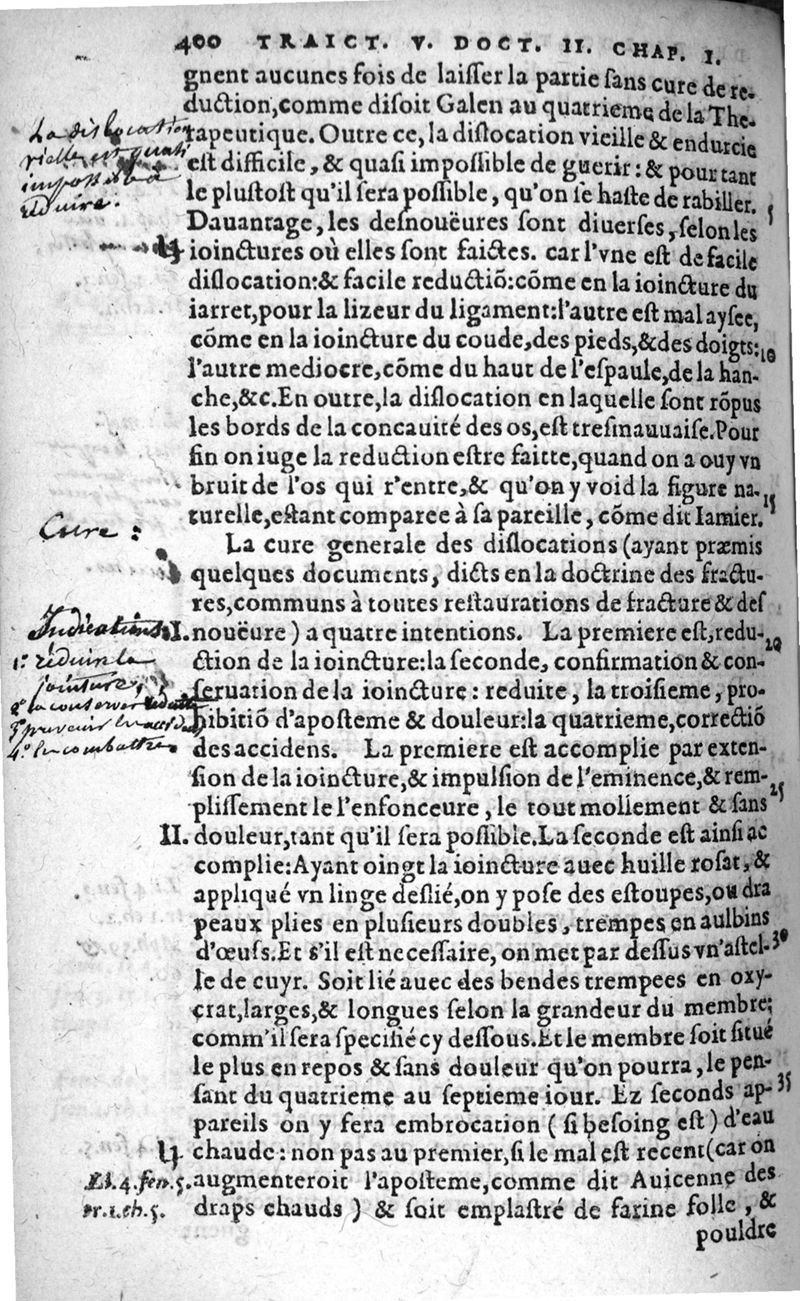 400 TRAICT. V. DOCT. II. CHAP. I.
gnent aucunes fois de laiſſer la partie ſans cure de re-
duction, comme diſoit Galen au quatrieme de la The-
rapeutique. Outre ce, la diſlocation vieille & endurcie
eſt difficile, & quaſi impoſſible de guerir: & pour tant
le pluſtoſt qu'il ſera poſſible, qu'on ſe haſte de rabiller.
La dislocation
vielle est quasi
impossible à
réduire.
5
Dauantage, les deſnouëures ſont diuerſes, ſelon les
ioinctures où elles ſont faictes. car l'vne eſt de facile
diſlocation:& facile reductiõ:cõme en la ioincture du
iarret, pour la lizeur du ligament:l'autre eſt mal ayſee,
cõme en la ioincture du coude, des pieds, & des doigts:
10
l'autre mediocre, cõme du haut de l'eſpaule, de la han-
che, &c. En outre, la diſlocation en laquelle ſont rõpus
les bords de la concauité des os, eſt treſinauuaiſe. Pour
fin on iuge la reduction eſtre faitte, quand on a ouy vn
bruit de l'os qui r'entre, & qu'on y void la figure na-
15
turelle, eſtant comparee à ſa pareille, cõme dit Iamier.
Cure:
La cure generale des diſlocations (ayant præmis
quelques documents, dicts en la doctrine des fractu-
res, communs à toutes reſtaurations de fracture & deſ
Indications
I. nouëure) a quatre intentions. La premiere eſt, redu-
20
ction de la ioincture: la ſeconde, confirmation & con-
ſeruation de la ioincture: reduite, la troiſieme, pro-
hibitiõ d'apoſteme & douleur: la quatrieme, correctiõ
des accidens. La premiere eſt accomplie par exten-
1º réduire la
jointure,
2º la conserver réduite
3º prevenir les accidens
4º les combattre.
ſion de la ioincture, & impulſion de l'eminence, & rem-
25
pliſſement le l'enfonceure, le tout mollement & ſans
II. douleur, tant qu'il ſera poſſible. La ſeconde eſt ainſi ac
complie: Ayant oingt la ioincture auec huille roſat, &
appliqué vn linge deſlié, on y poſe des eſtoupes, ou dra
peaux plies en pluſieurs doubles, trempes en aulbins
d'œufs. Et s'il eſt neceſſaire, on met par deſſus vn'aſtel-
30
le de cuyr. Soit lié auec des bendes trempees en oxy-
crat, larges, & longues ſelon la grandeur du membre;
comm'il ſera ſpecifié cy deſſous. Et le membre ſoit ſitué
le plus en repos & ſans douleur qu'on pourra, le pen-
ſant du quatrieme au ſeptieme iour. Ez ſeconds ap-
35
pareils on y fera embrocation (ſi beſoing eſt) d'eau
chaude: non pas au premier, ſi le mal eſt recent (car on
Li. 4. fen. 5.
tr. 1. ch. 5.
augmenteroit l'apoſteme, comme dit Auicenne des
draps chauds) & ſoit emplaſtré de farine folle, &
pouldre